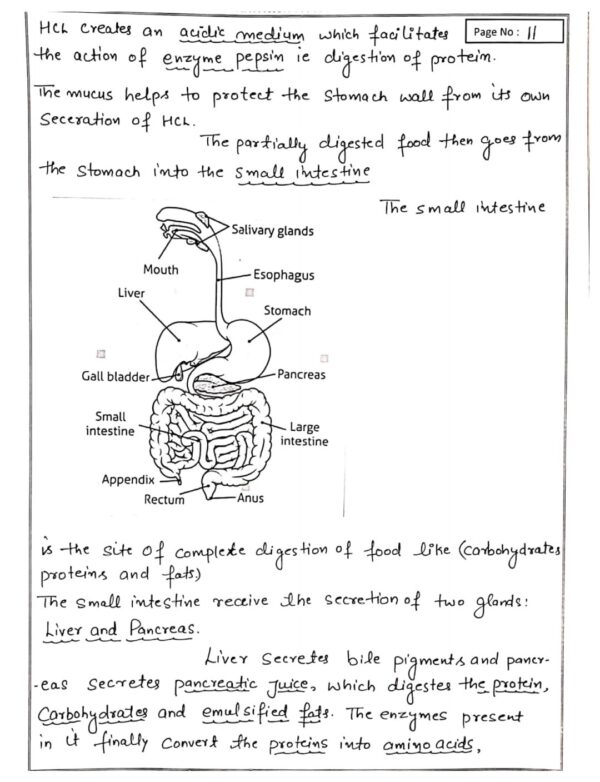 HCL creates an acidic medium which facilitates
Page No: 11
the action of enzyme pepsin ie digestion of protein.
The mucus helps to protect the stomach wall from its own
Seceration of HCL.
The partially digested food then goes from
the stomach into the small intestine
The small intestine
Salivary glands
Mouth
Esophagus
Liver
Stomach
Gall bladder
Pancreas
Small
intestine
Large
intestine
Appendix
Rectum
Anus
is the site of complete digestion of food like (carbohydrates
proteins and fats)
The small intestine receive the secretion of two glands:
Liver and Pancreas.
Liver secretes bile pigments and pancr-
-eas secretes pancreatic juice, which digestes the protein,
Carbohydrates and emulsified fats. The enzymes present
in it finally convert the proteins into amino acids,